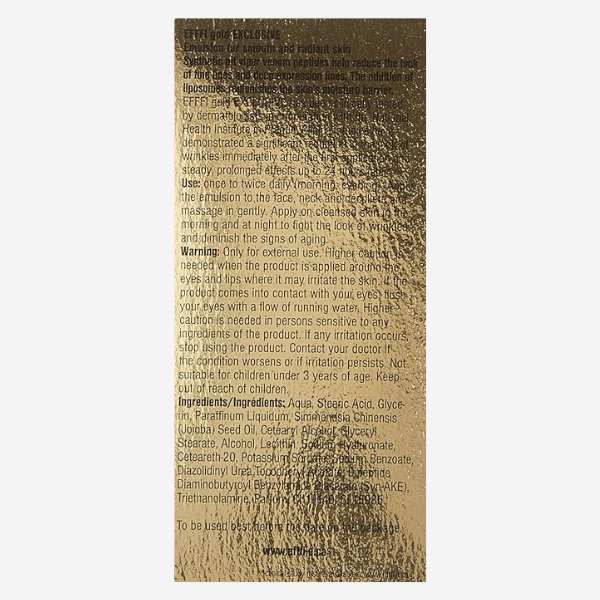 EFFFI gold EXCLUSIVE
Emulsion for smooth and radiant skin
Synthetic pit viper venom peptides help reduce the look
of fine lines and deep expression lines. The addition of
liposomes replenishes the skin's moisture barrier.
EFFFI gold EXCLUSIVE tested
by National
Health Institute in
demonstrated a significant
wrinkles immediately after the first application
steady, prolonged effects up to 24
Use: once to twice daily (morning, evening). Apply
the emulsion to the face, neck and and
massage in gently. Apply on cleansed skin in the
morning and at night to fight the look of wrinkles
and diminish the signs of aging.
Warning: Only for external use. Higher caution is
needed when the product is applied around the
eyes and lips where it may irritate the skin. If the
product comes into contact with your eyes, flush
your eyes with a flow of running water. Higher
caution is needed in persons sensitive to any
ingredients of the product. If any irritation occurs,
stop using the product. Contact your doctor if
the condition worsens or if irritation persists. Not
suitable for children under 3 years of age. Keep
out of reach of children.
Ingredients/Ingrédients: Aqua, Stearic Acid, Glyce-
rin, Paraffinum Liquidum, Simmondsia Chinensis
(Jojoba) Seed Oil, Cetearyl Alcohol, Glyceryl
Stearate, Alcohol, Lecithin, Sodium Hyaluronate,
Ceteareth-20, Potassium Sorbate, Sodium Benzoate,
Diazolidinyl Urea, Tocopheryl Acetate, Dipeptide
Diaminobutyroyl Benzylamide Diacetate (Syn-AKE),
Triethanolamine, Parfum,
To be used best before the date on the package.